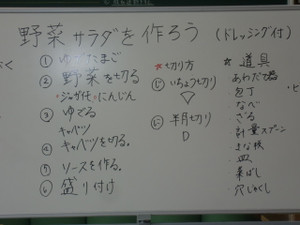 野菜サラダを作ろう (ドレッシング付)
① ゆでたまご
② 野菜を切る
・ジャガイモ・にんじん
③ ゆでる
キャベツ
④ キャベツを切る。
⑤ ソースを作る。
⑥ 盛り付け
*切り方
いちょう切り
半月切り
*道具
あわだて器
・包丁
・なべ
・ざる
・計量スプーン
・まな板
・皿
・菜ばし
・穴じゃくし